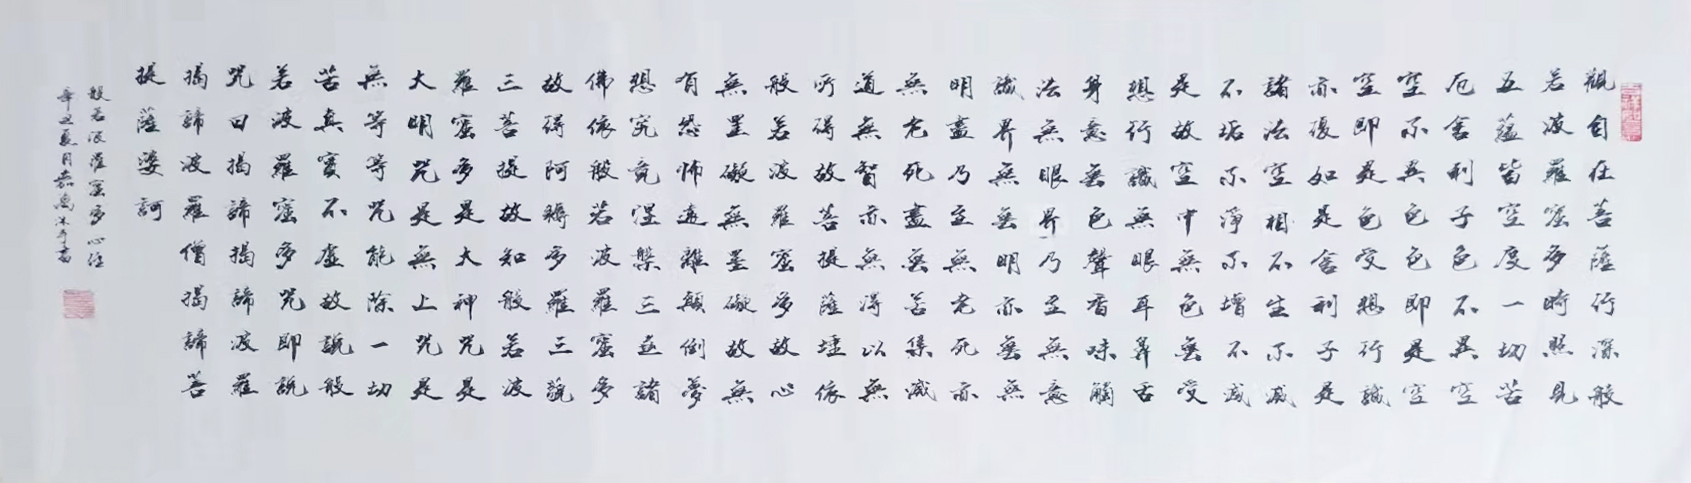 觀自在菩薩行深般
若波羅蜜多時照見
五蘊皆空度一切苦
厄舍利子色不異空
空不異色色即是空
空即是色受想行識
亦復如是舍利子是
諸法空相不生不滅
不垢不淨不增不減
是故空中無色無受
想行識無眼耳鼻舌
身意無色聲香味觸
法無眼界乃至無意
識界無無明亦無無
明盡乃至無老死亦
無老死盡無苦集滅
道無智亦無得以無
所得故菩提薩埵依
般若波羅蜜多故心
無罣礙無罣礙故無
有恐怖遠離顛倒夢
想究竟涅槃三世諸
佛依般若波羅蜜多
故得阿耨多羅三藐
三菩提故知般若波
羅蜜多是大神咒是
大明咒是無上咒是
無等等咒能除一切
苦真實不虛故說般
若波羅蜜多咒即說
咒曰揭諦揭諦波羅
揭諦波羅僧揭諦菩
提薩婆訶
般若波羅蜜多心經
辛丑夏月